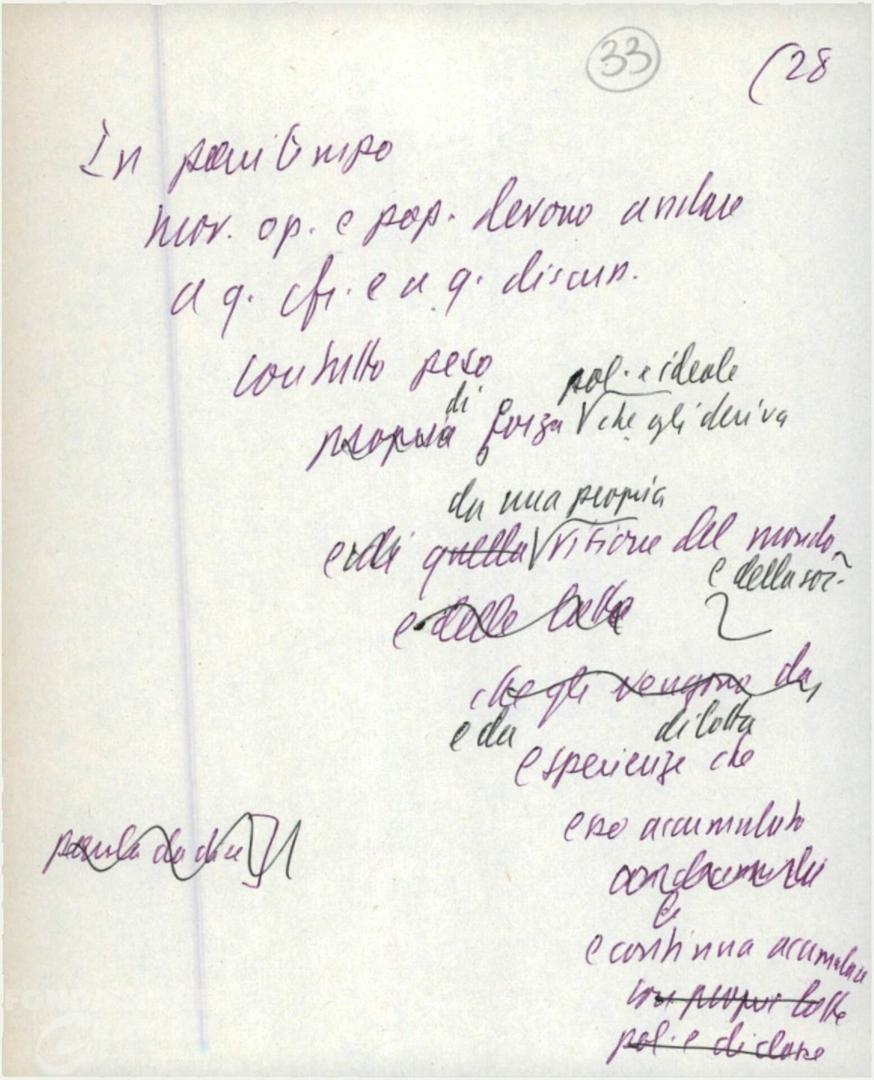 33
(28
In pari tempo
mov. op. e pop. devono andare
a q. cfr. e a q. discus.
con tutto peso
pol. e ideale
di
propria forza che gli deriva
da una propria
e di quella visione del mondo
e della soc.
e delle lotte
che gli vengono da
e da di lotta
esperienze che
esso accumulato
e
e continua accumulare
con propri lotte
pol. e di classe